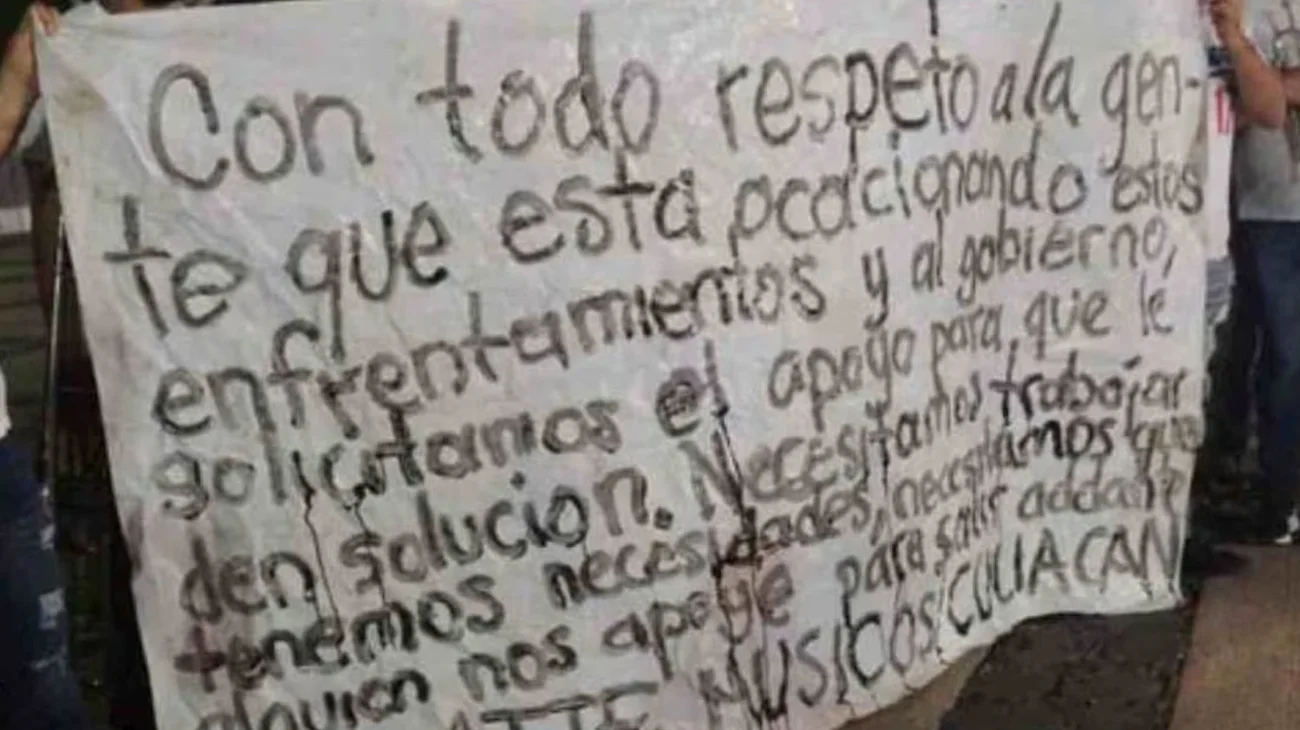 Con todo respeto a la gen-
te que esta ocacionando estos
enfrentamientos y al gobierno,
solicitamos el apoyo para que le
den solucion. Necesitamos trabajar
tenemos necesidades, necesitamos que
alguien nos apoye para salir adelante
ATTE MUSICOS CULIACAN